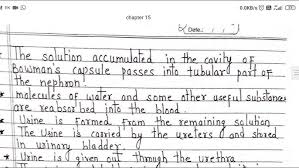 0.0KB/s
chapter 15
Date:
The solution accumulated in the cavity of
Bowman's capsule passes into tubular part of
the nephron.
* molecules of water and some other useful substances
are reabsorbed into the blood.
* Usine is formed from the remaining solution
* The Usine is carried by the ureters and shred
in urinary bladder.
* Usine is given out through the urethra